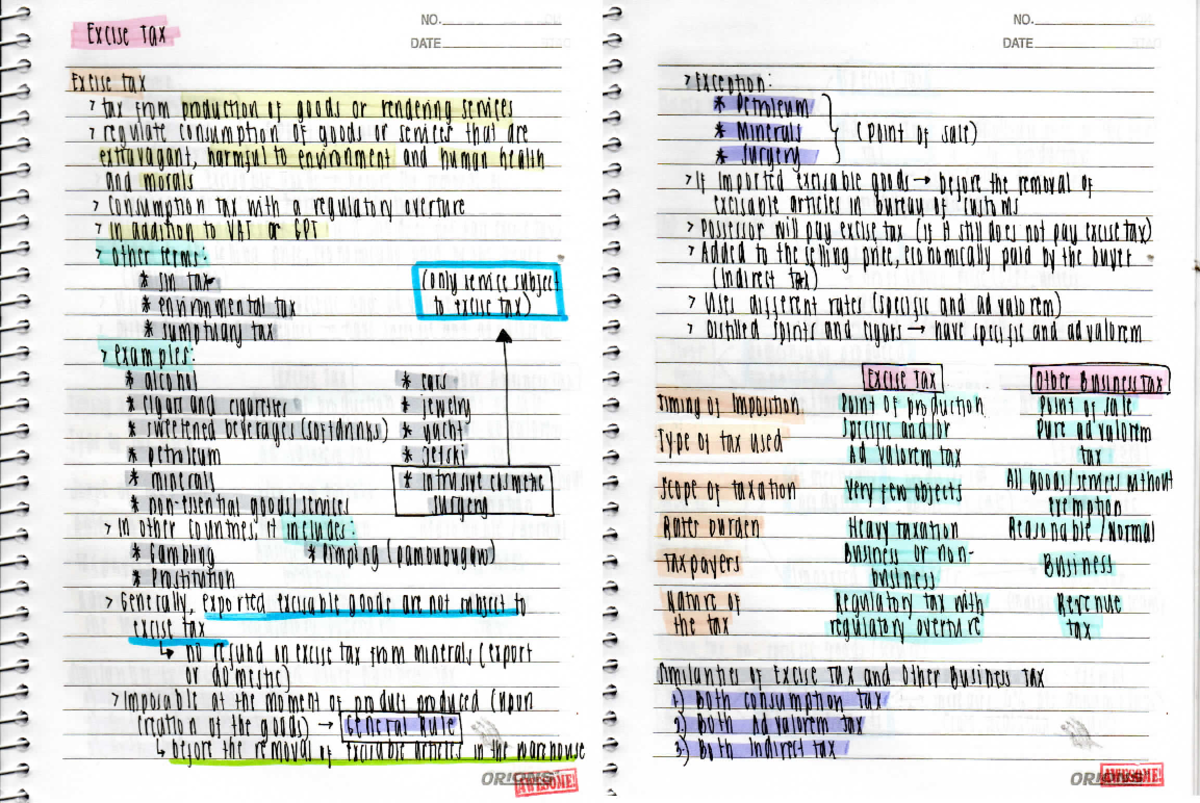 NO.
DATE
Excise Tax
Excise tax
> tax from production of goods or rendering services
> regulate consumption of goods or services that are
extravagant, harmful to environment and human health
and morals
> Consumption tax with a regulatory overture
> In addition to VAT or OPT
> Other terms:
* sin tax
* environmental tax
* sumptuary tax
(only service subject
to excise tax)
> Examples:
* alcohol
* cigars and cigarettes
* sweetened beverages (softdrinks)
* petroleum
* minerals
* non-essential goods/services
* cars
* jewelry
* yacht
* jetski
* intrusive cosmetic
surgery
> In other countries, it includes:
* Gambling
* Pimping (pambubugaw)
* Prostitution
> Generally, exported excisable goods are not subject to
excise tax
↳ no refund on excise tax from minerals (export
or domestic)
> Imposable at the moment of product produced (upon
creation of the goods) → General Rule
↳ before the removal of excisable articles in the warehouse
ORIGINS
AWESOME!
NO.
DATE
> Exception:
* Petroleum
* Minerals
* Surgery
(point of sale)
> If imported excisable goods → before the removal of
excisable articles in bureau of customs
> Possessor will pay excise tax (if it still does not pay excise tax)
> Added to the selling price, economically paid by the buyer
(Indirect tax)
> Uses different rates (specific and ad valorem)
> Distilled spirits and cigars → have specific and ad valorem
Excise Tax Other Business Tax
Timing of Imposition Point of production Point of sale
Type of tax used Specific and/or Ad valorem tax Pure ad valorem tax
Scope of taxation Very few objects All goods/services without exemption
Rates burden Heavy taxation Reasonable / Normal
Taxpayers Business or non-business Business
Nature of the tax Regulatory tax with regulatory overture Revenue tax
Similarities of Excise Tax and Other Business Tax
1.) Both consumption tax
2.) Both Ad valorem tax
3.) Both Indirect tax
ORIGINS
AWESOME!